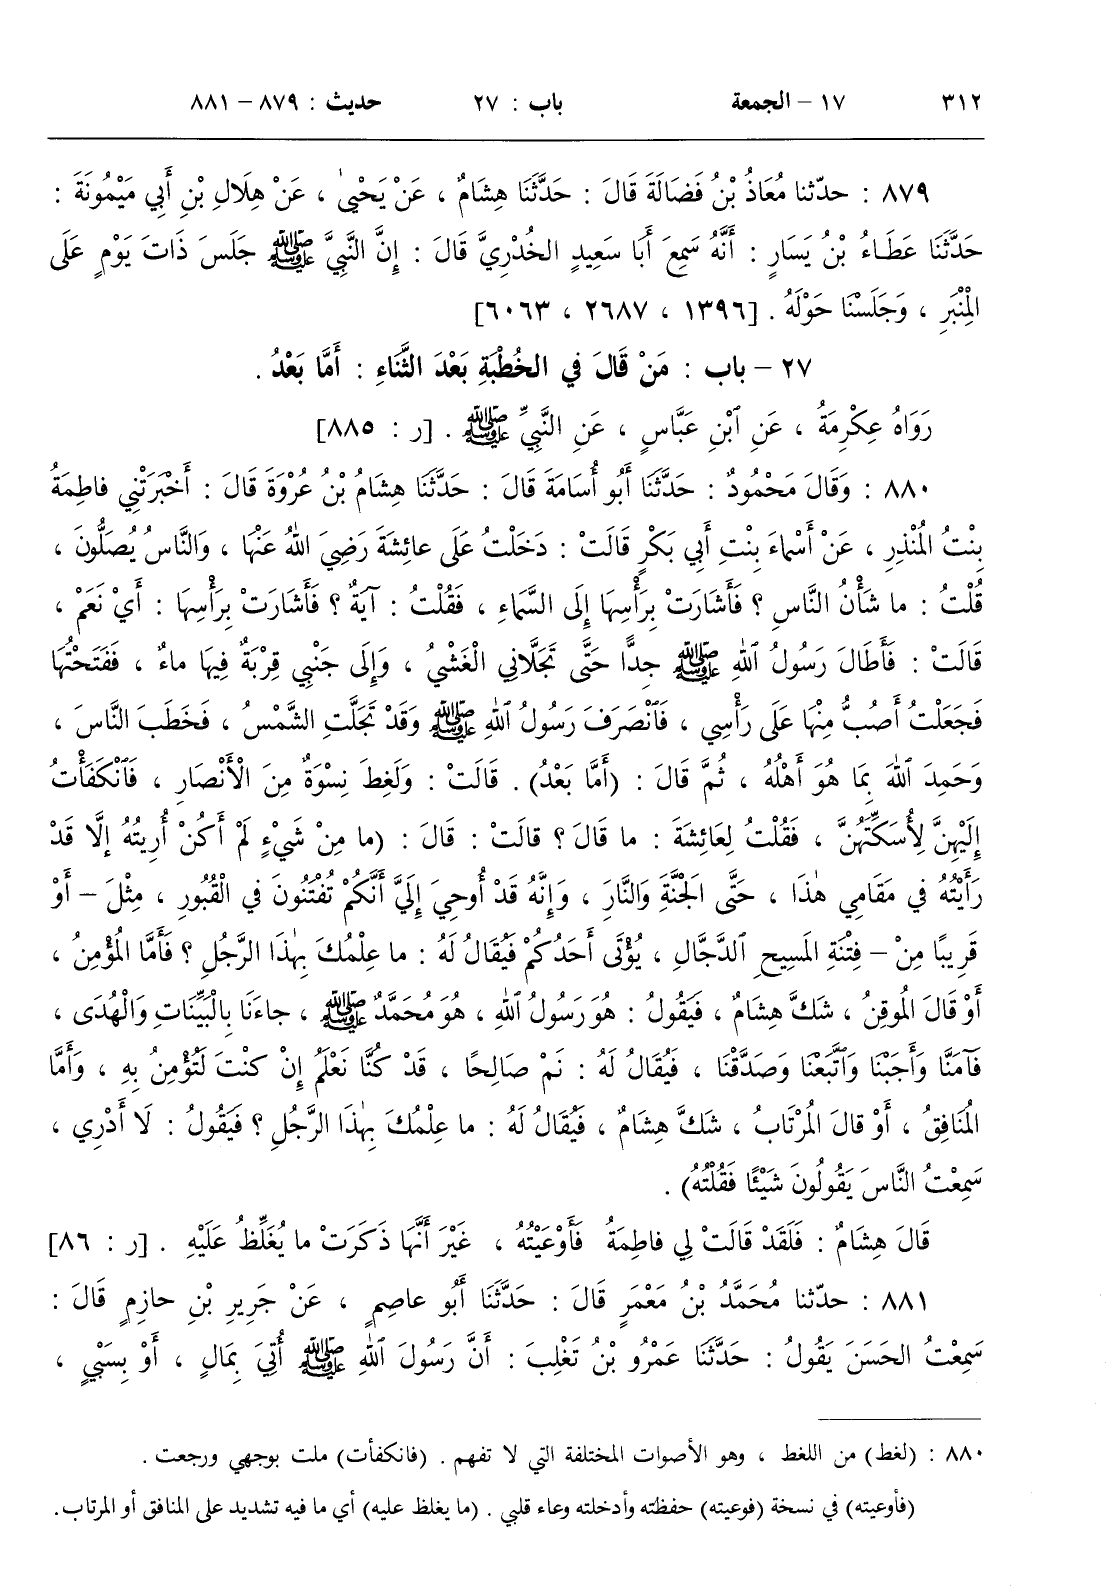 ٣١٢ ١٧ – الجمعة باب : ٢٧ حديث : ٨٧٩ – ٨٨١
٨٧٩ : حدّثنا مُعَاذُ بْنُ فَضَالَةَ قَالَ : حَدَّثَنَا هِشَامٌ ، عَنْ يَحْيىٰ ، عَنْ هِلَالِ بْنِ أَبِي مَيْمُونَةَ :
حَدَّثَنَا عَطَاءُ بْنُ يَسَارٍ : أَنَّهُ سَمِعَ أَبَا سَعِيدٍ الخُدْرِيَّ قَالَ : إِنَّ النَّبِيَّ ﷺ جَلَسَ ذَاتَ يَوْمٍ عَلَى
الْمِنْبَرِ ، وَجَلَسْنَا حَوْلَهُ . [١٣٩٦ ، ٢٦٨٧ ، ٦٠٦٣]
٢٧ – باب : مَنْ قَالَ في الخُطْبَةِ بَعْدَ الثَّنَاءِ : أَمَّا بَعْدُ .
رَوَاهُ عِكْرِمَةُ ، عَنِ ٱبْنِ عَبَّاسٍ ، عَنِ النَّبِيِّ ﷺ . [ر : ٨٨٥]
٨٨٠ : وَقَالَ مَحْمُودٌ : حَدَّثَنَا أَبُو أُسَامَةَ قَالَ : حَدَّثَنَا هِشَامُ بْنُ عُرْوَةَ قَالَ : أَخْبَرَتْنِي فاطِمَةُ
بِنْتُ الْمُنْذِرِ ، عَنْ أَسْماءَ بِنْتِ أَبِي بَكْرٍ قَالَتْ : دَخَلْتُ عَلَى عائِشَةَ رَضِيَ اللهُ عَنْهَا ، وَالنَّاسُ يُصَلُّونَ ،
قُلْتُ : ما شَأْنُ النَّاسِ ؟ فَأَشَارَتْ بِرَأْسِهَا إِلَى السَّمَاءِ ، فَقُلْتُ : آيَةٌ ؟ فَأَشَارَتْ بِرَأْسِهَا : أَيْ نَعَمْ ،
قَالَتْ : فَأَطَالَ رَسُولُ ٱللهِ ﷺ جِدًّا حَتَّى تَجَلَّانِي الْغَشْيُ ، وَإِلَى جَنْبِي قِرْبَةٌ فِيهَا ماءٌ ، فَفَتَحْتُهَا
فَجَعَلْتُ أَصُبُّ مِنْهَا عَلَى رَأْسِي ، فَٱنْصَرَفَ رَسُولُ ٱللهِ ﷺ وَقَدْ تَجَلَّتِ الشَّمْسُ ، فَخَطَبَ النَّاسَ ،
وَحَمِدَ ٱللهَ بِمَا هُوَ أَهْلُهُ ، ثُمَّ قَالَ : (أَمَّا بَعْدُ) . قَالَتْ : وَلَغِطَ نِسْوَةٌ مِنَ الْأَنْصَارِ ، فَٱنْكَفَأْتُ
إِلَيْهِنَّ لِأُسَكِّتَهُنَّ ، فَقُلْتُ لِعَائِشَةَ : ما قَالَ ؟ قالَتْ : قَالَ : (ما مِنْ شَيْءٍ لَمْ أَكُنْ أُرِيتُهُ إِلَّا قَدْ
رَأَيْتُهُ فِي مَقَامِي هٰذَا ، حَتَّى الْجَنَّةِ وَالنَّارِ ، وَإِنَّهُ قَدْ أُوحِيَ إِلَيَّ أَنَّكُمْ تُفْتَنُونَ فِي الْقُبُورِ ، مِثْلَ – أَوْ
قَرِيبًا مِنْ – فِتْنَةِ المَسِيحِ ٱلدَّجَّالِ ، يُؤْتَى أَحَدُكُمْ فَيُقَالُ لَهُ : ما عِلْمُكَ بِهٰذَا الرَّجُلِ ؟ فَأَمَّا الْمُؤْمِنُ ،
أَوْ قَالَ الْمُوقِنُ ، شَكَّ هِشَامٌ ، فَيَقُولُ : هُوَ رَسُولُ ٱللهِ ، هُوَ مُحَمَّدٌ ﷺ ، جاءَنَا بِالْبَيِّنَاتِ وَالْهُدَى ،
فَآمَنَّا وَأَجَبْنَا وَٱتَّبَعْنَا وَصَدَّقْنَا ، فَيُقَالُ لَهُ : نَمْ صَالِحًا ، قَدْ كُنَّا نَعْلَمُ إِنْ كُنْتَ لَتُؤْمِنُ بِهِ ، وَأَمَّا
الْمُنَافِقُ ، أَوْ قالَ الْمُرْتَابُ ، شَكَّ هِشَامٌ ، فَيُقَالُ لَهُ : ما عِلْمُكَ بِهٰذَا الرَّجُلِ ؟ فَيَقُولُ : لَا أَدْرِي ،
سَمِعْتُ النَّاسَ يَقُولُونَ شَيْئًا فَقُلْتُهُ) .
قَالَ هِشَامٌ : فَلَقَدْ قَالَتْ لِي فاطِمَةُ فَأَوْعَيْتُهُ ، غَيْرَ أَنَّهَا ذَكَرَتْ ما يُغَلِّظُ عَلَيْهِ . [ر : ٨٦]
٨٨١ : حدّثنا مُحَمَّدُ بْنُ مَعْمَرٍ قَالَ : حَدَّثَنَا أَبُو عاصِمٍ ، عَنْ جَرِيرِ بْنِ حازِمٍ قَالَ :
سَمِعْتُ الحَسَنَ يَقُولُ : حَدَّثَنَا عَمْرُو بْنُ تَغْلِبَ : أَنَّ رَسُولَ ٱللهِ ﷺ أُتِيَ بِمَالٍ ، أَوْ بِسَبْيٍ ،
٨٨٠ : (لغط) من اللغط ، وهو الأصوات المختلفة التي لا تفهم . (فانكفأت) ملت بوجهي ورجعت .
(فأوعيته) في نسخة (فوعيته) حفظته وأدخلته وعاء قلبي . (ما يغلظ عليه) أي ما فيه تشديد على المنافق أو المرتاب .